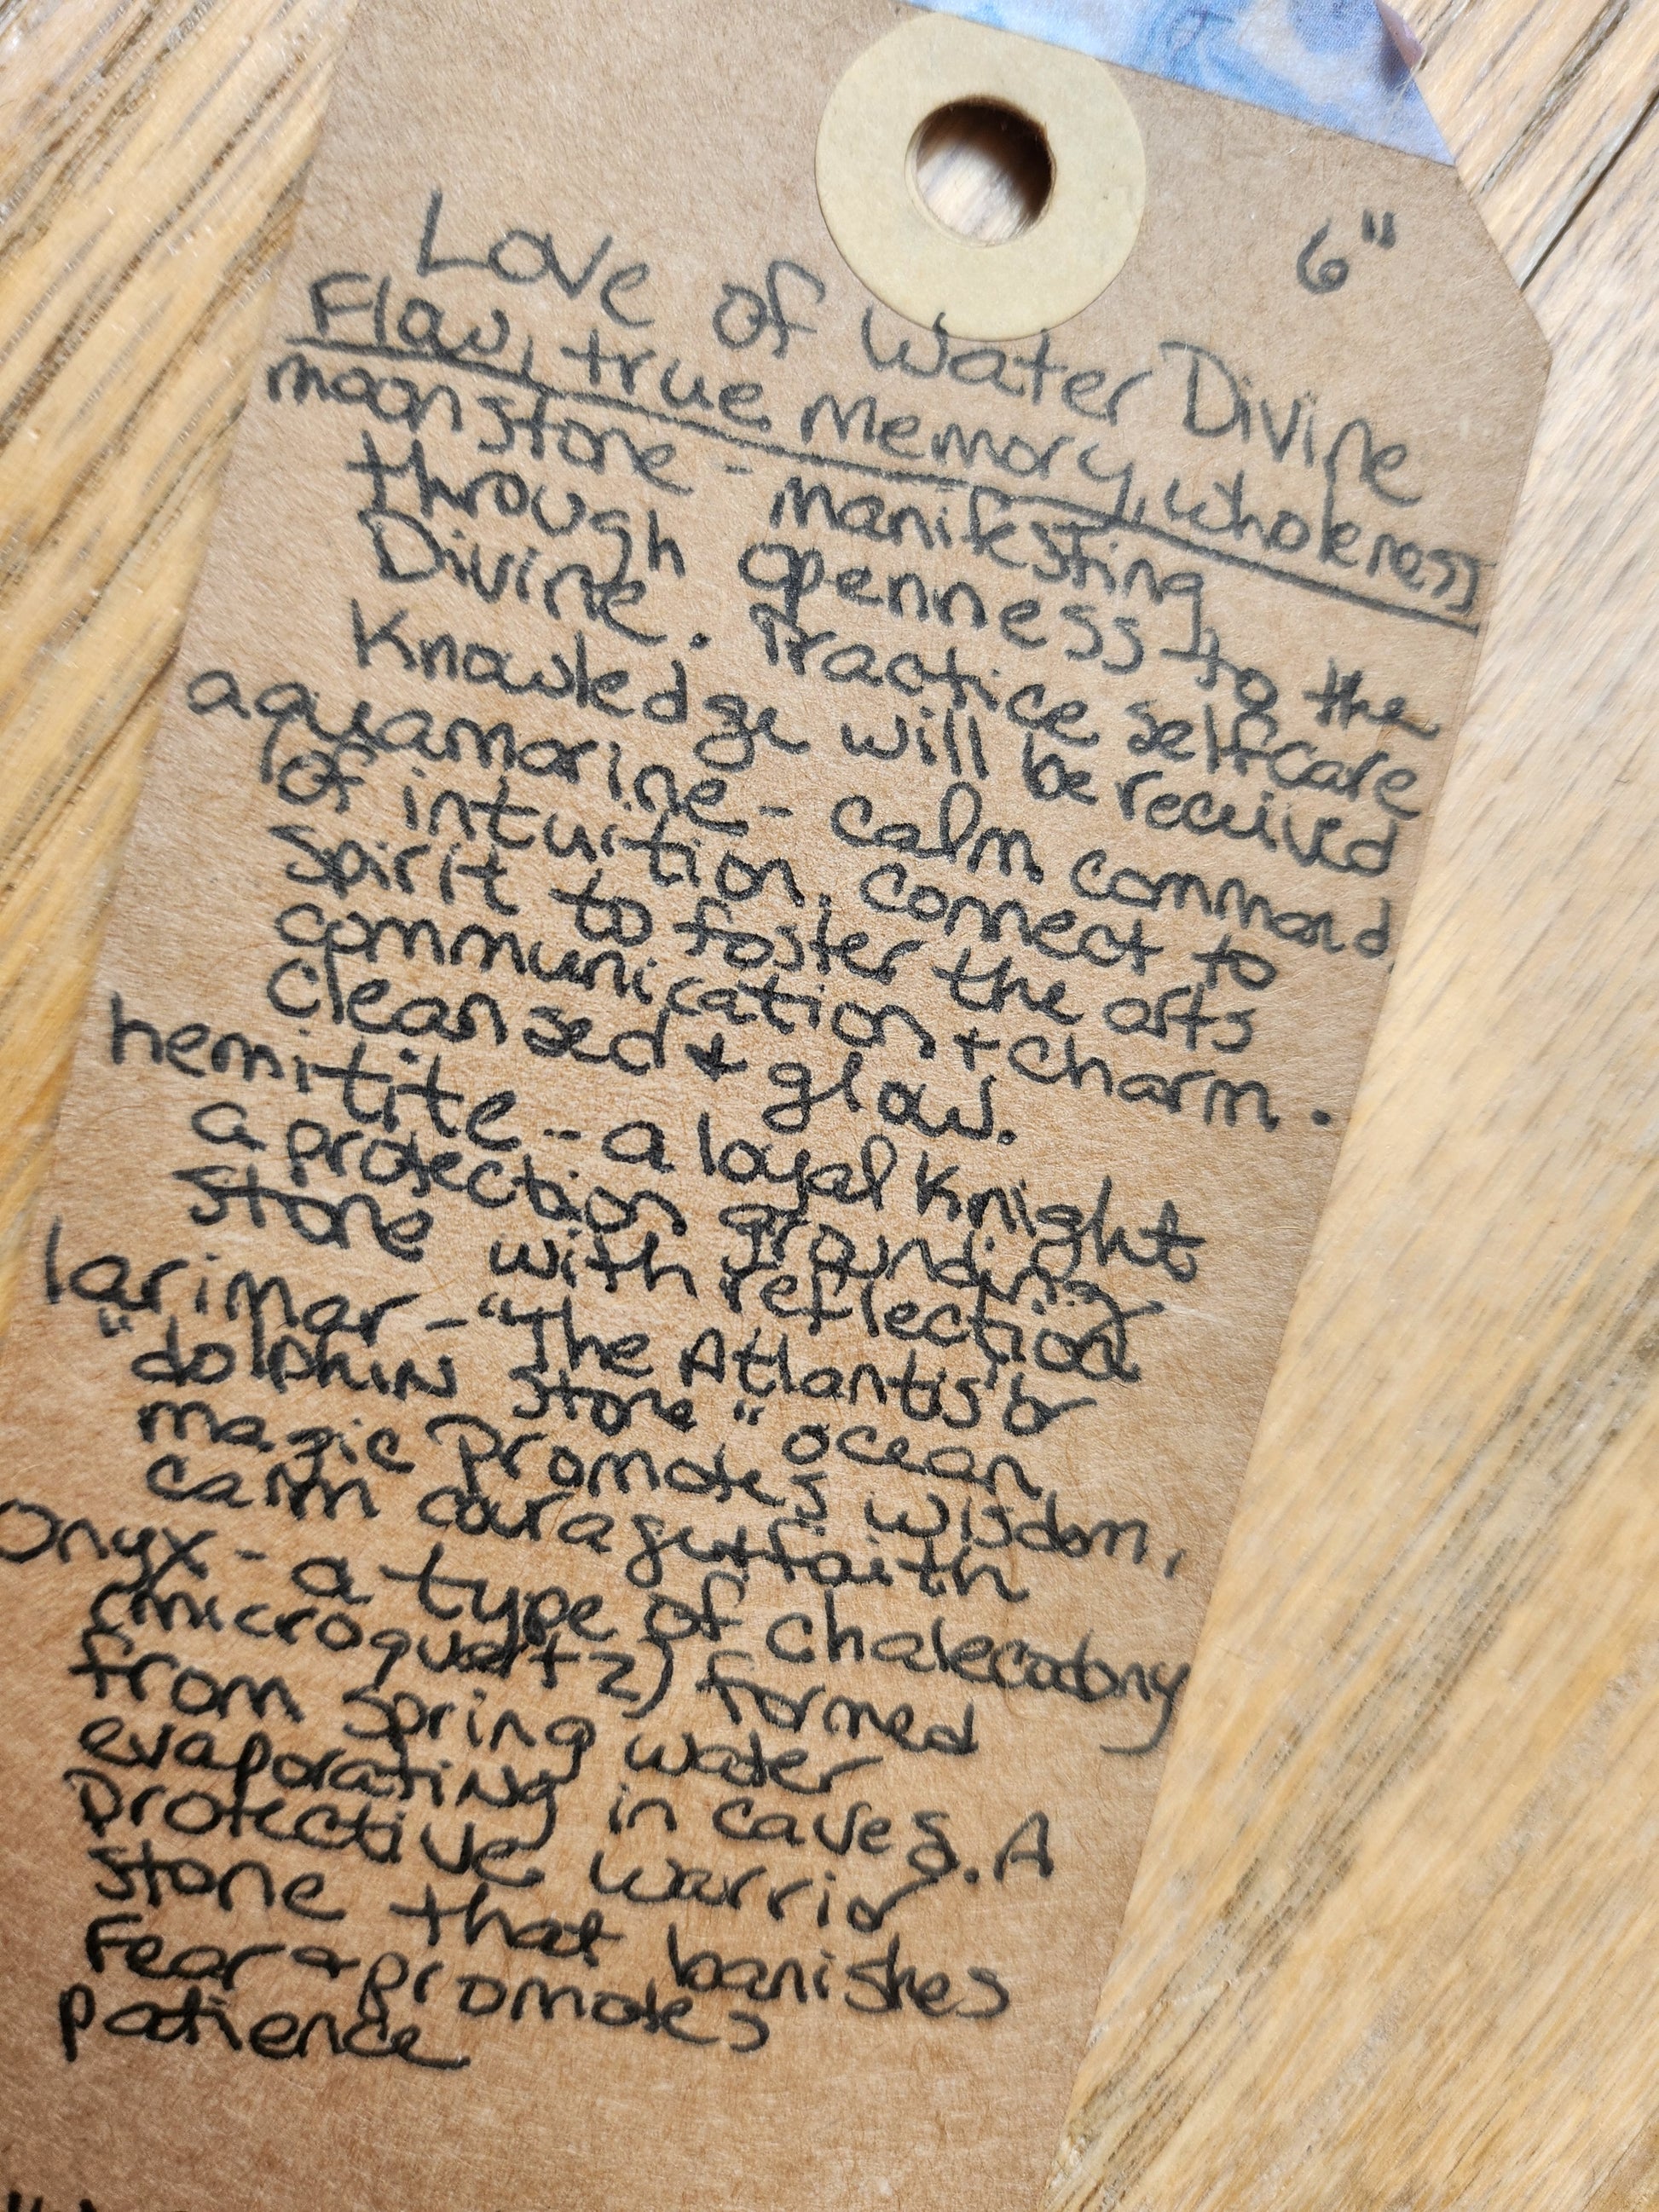 6"
Love of Water Divine
Flow, true Memory, wholeness
moonstone - manifesting
through openness to the
Divine. Practice selfcare
Knowledge will be received
aquamarine - calm command
of intuition, connect to
Spirit to foster the arts
communication + charm.
Cleansed + glow.
hemitite - a loyal Knight
a protection grounding
stone with reflection
larimar - "The Atlantis or
"dolphin stone" ocean
magic Promotes wisdom,
calm courage + faith
Onyx - a type of chalecadony
(microquartz) formed
from spring water
evaporating in caves. A
protective warrior
stone that banishes
Fear + promotes
patience